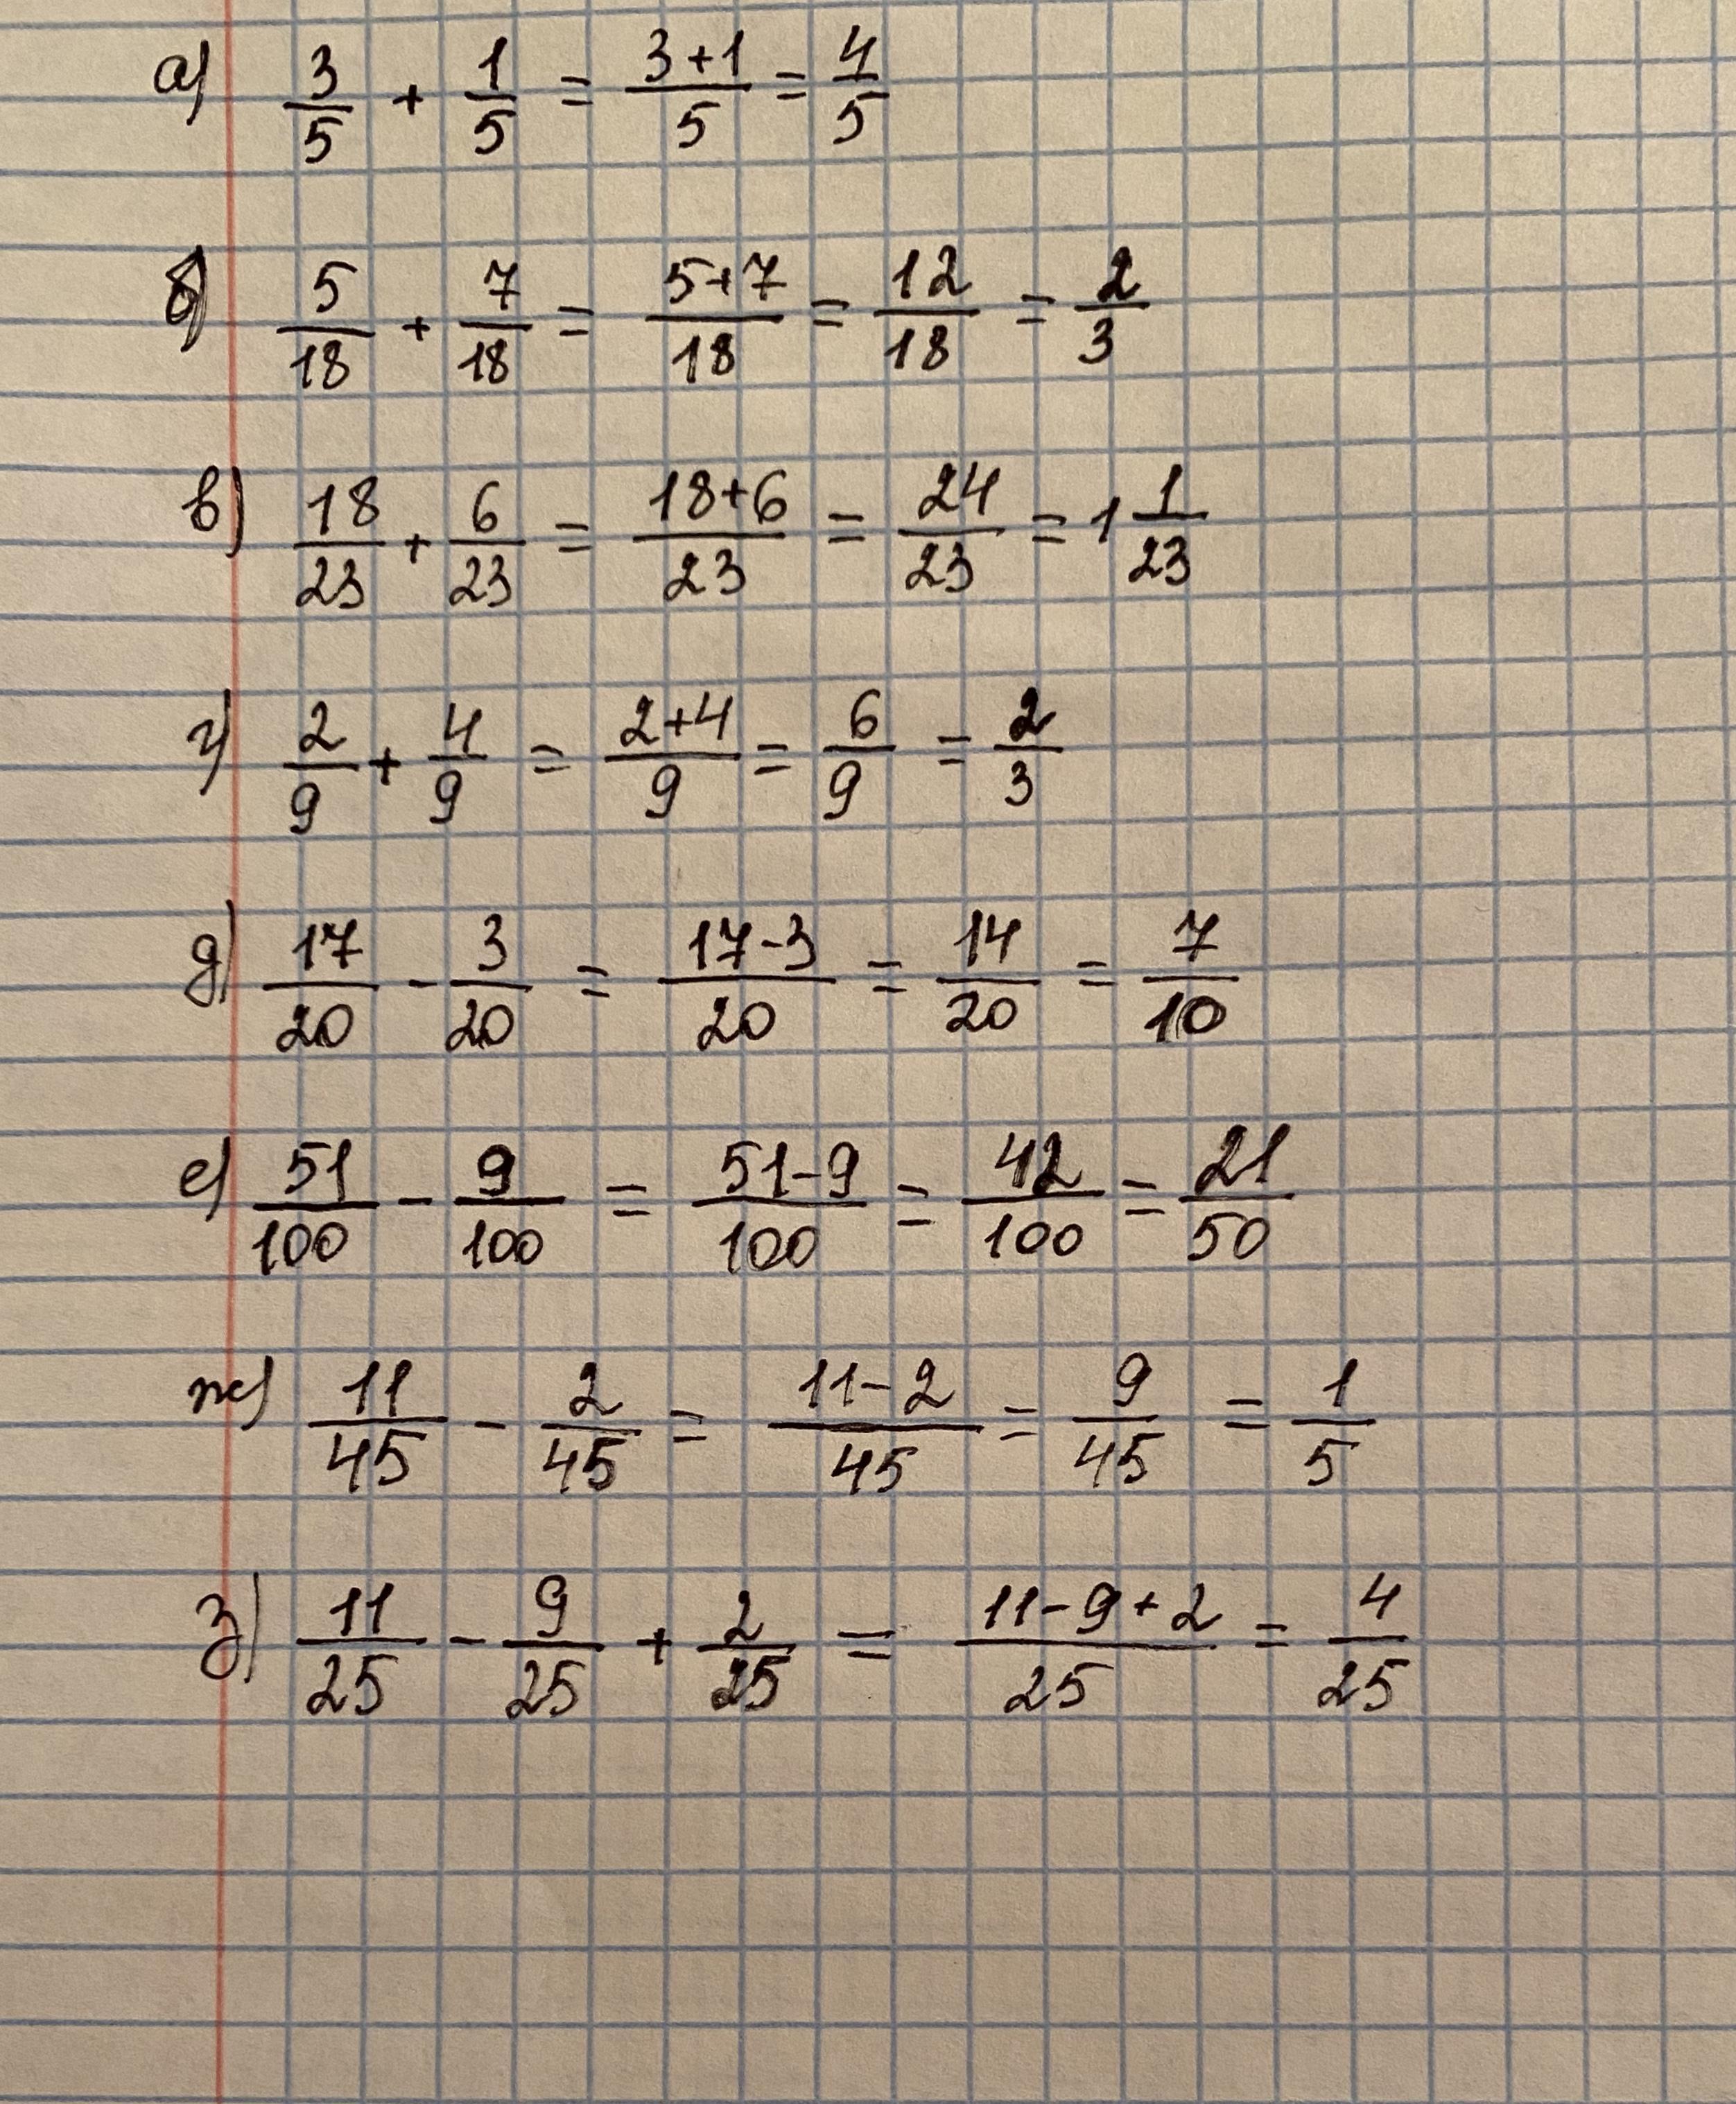 а) 3/5 + 1/5 = (3+1)/5 = 4/5
б) 5/18 + 7/18 = (5+7)/18 = 12/18 = 2/3
в) 18/23 + 6/23 = (18+6)/23 = 24/23 = 1 1/23
г) 2/9 + 4/9 = (2+4)/9 = 6/9 = 2/3
д) 17/20 - 3/20 = (17-3)/20 = 14/20 = 7/10
е) 51/100 - 9/100 = (51-9)/100 = 42/100 = 21/50
ж) 11/45 - 2/45 = (11-2)/45 = 9/45 = 1/5
з) 11/25 - 9/25 + 2/25 = (11-9+2)/25 = 4/25